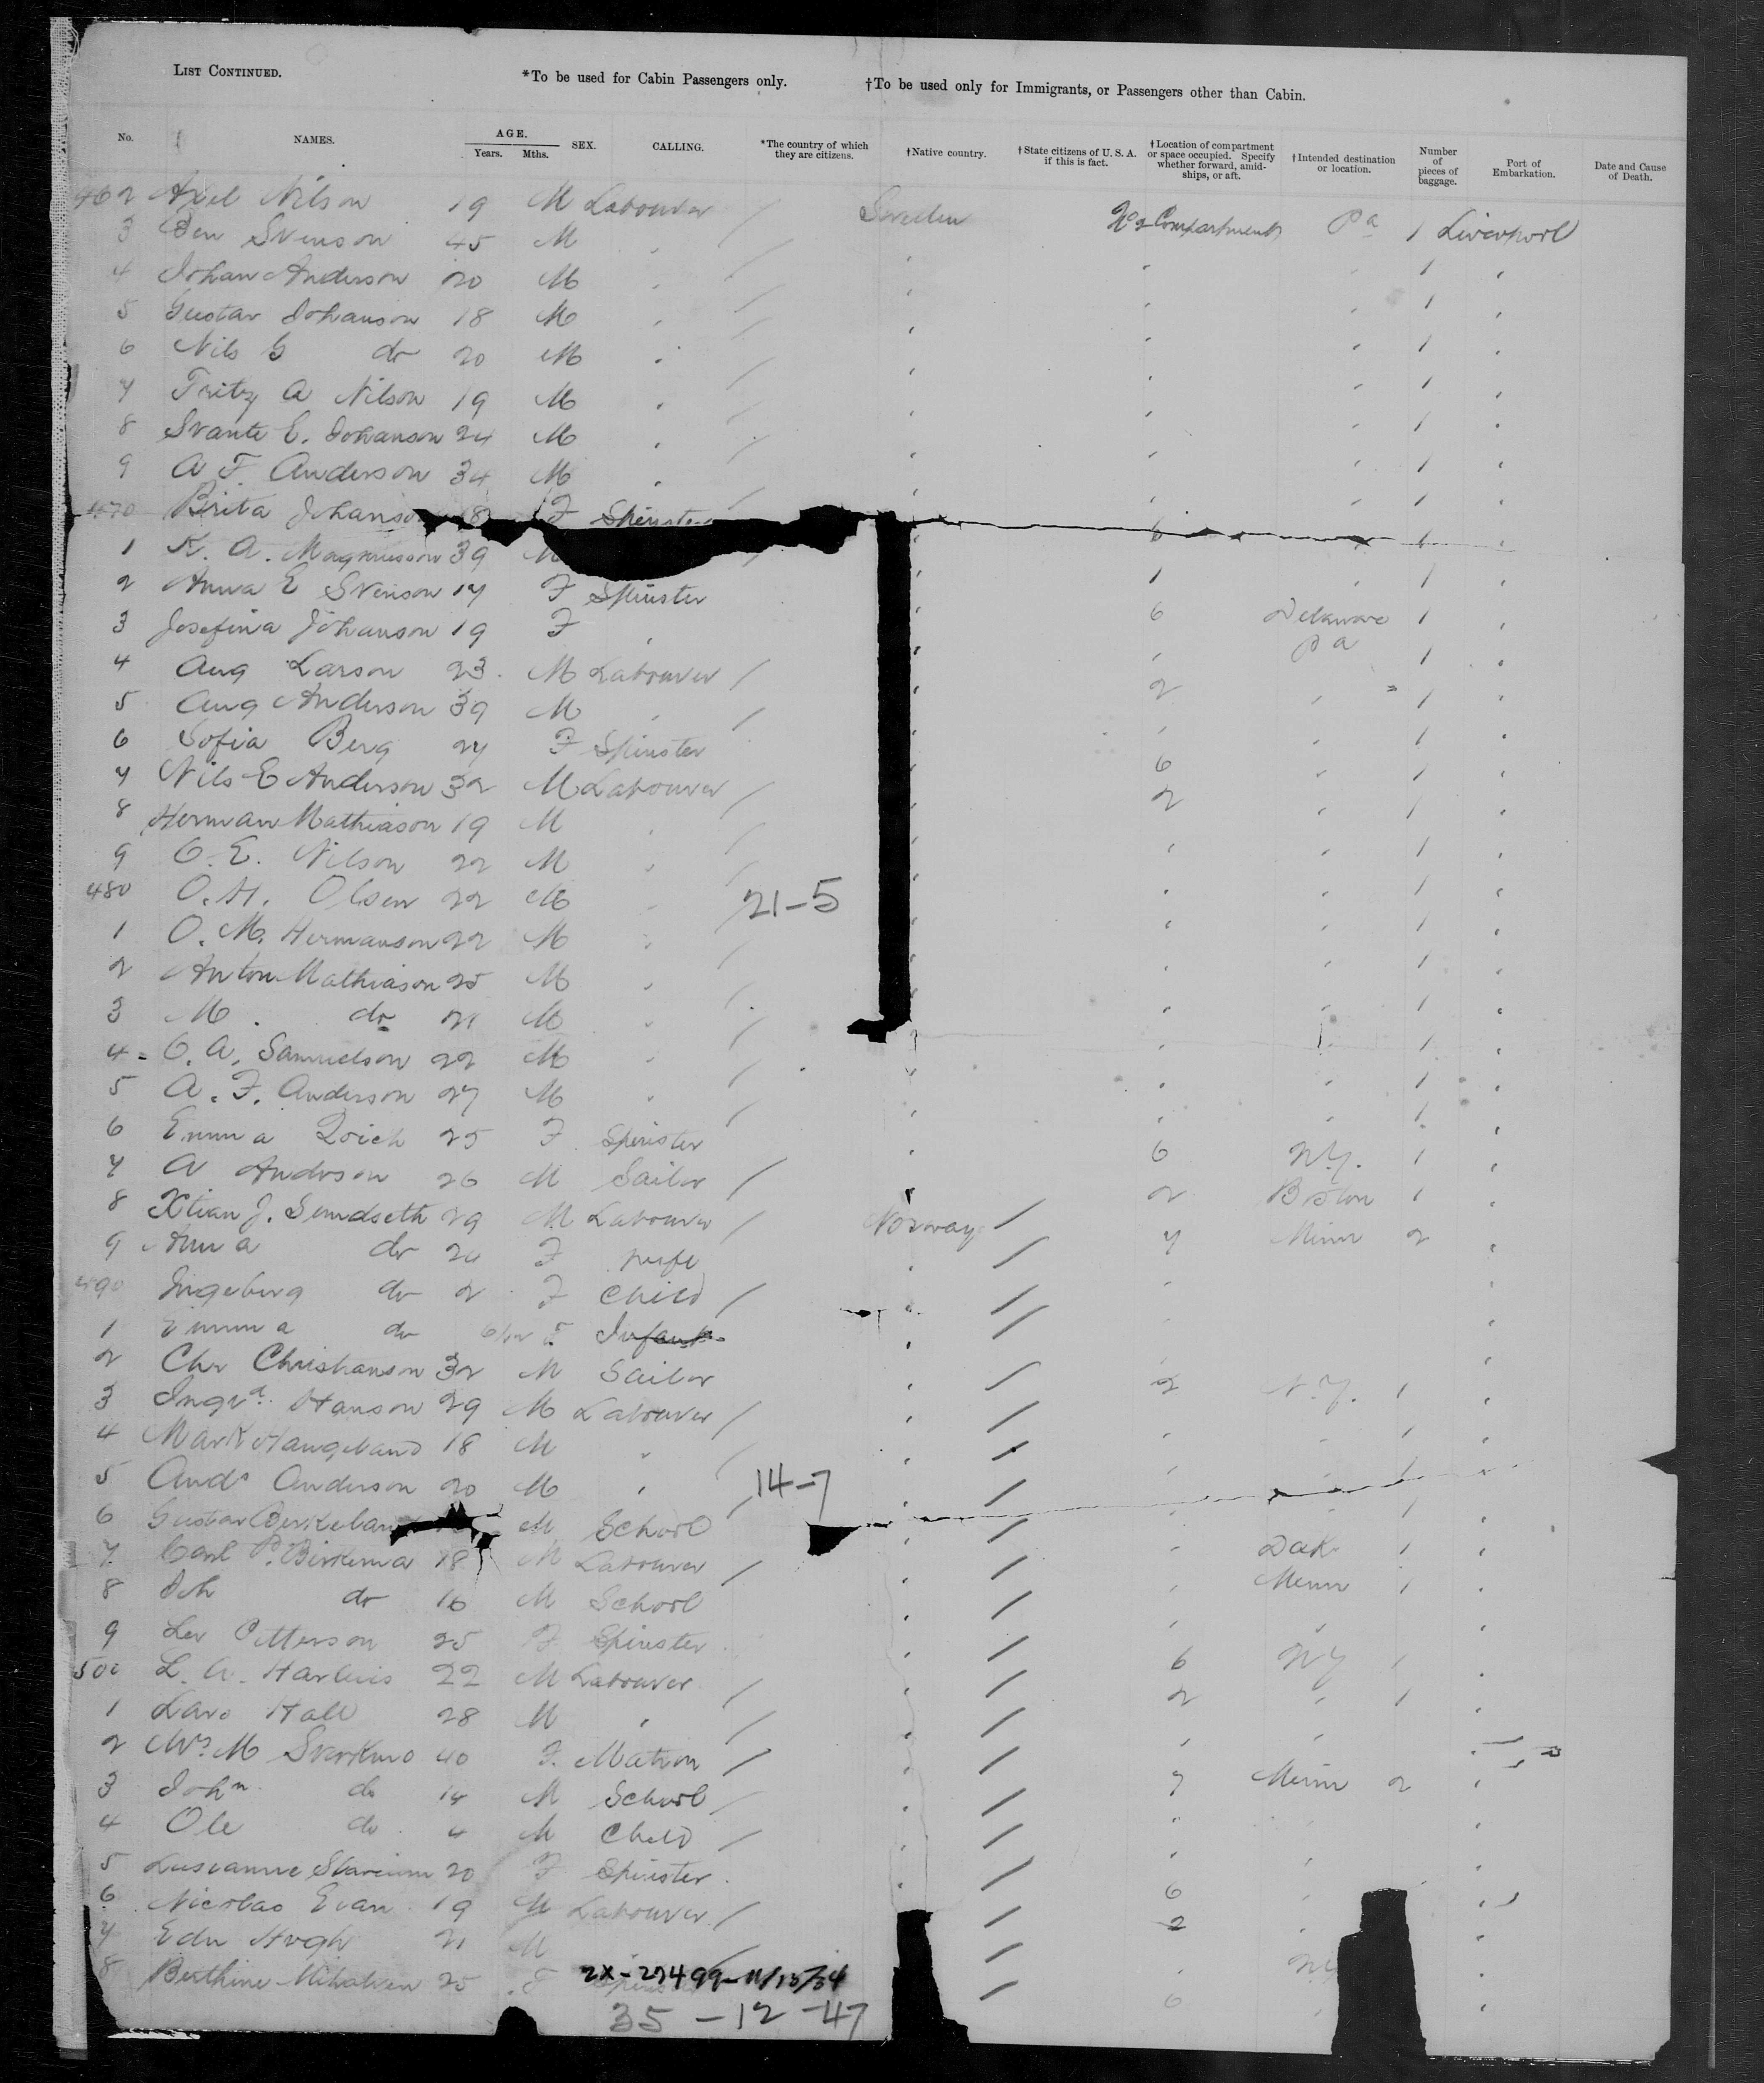 LIST CONTINUED. *To be used for Cabin Passengers only. †To be used only for Immigrants, or Passengers other than Cabin.
No. NAMES. AGE. Years. Mths. SEX. CALLING. *The country of which they are citizens. †Native country. †State citizens of U. S. A. if this is fact. †Location of compartment or space occupied. Specify whether forward, amidships, or aft. †Intended destination or location. Number of pieces of baggage. Port of Embarkation. Date and Cause of Death.
462 Axel Nilson 19 M Labourer / Sweden No 2 Compartment Pa 1 Liverpool
3 Sven Svenson 45 M " / " " " 1 "
4 Johan Anderson 20 M " / " " " 1 "
5 Gustav Johanson 18 M " / " " " 1 "
6 Nils G do 20 M " / " " " 1 "
7 Fritz A Nilson 19 M " / " " " 1 "
8 Svante E. Johanson 24 M " / " " " 1 "
9 A F. Anderson 34 M " / " " " 1 "
470 Brita Johanson 18 F Spinster " 6 " 1 "
1 K. A. Magnusson 39 M / " 1 " 1 "
2 Anna E Svenson 17 F Spinster " 6 Delaware 1 "
3 Josefina Johanson 19 F " " " Pa 1 "
4 Aug Larson 23 M Labourer / " 2 " 1 "
5 Aug Anderson 39 M " / " " " 1 "
6 Sofia Berg 27 F Spinster " 6 " 1 "
7 Nils E Anderson 32 M Labourer / " 2 " 1 "
8 Herman Mathiason 19 M " / " " " 1 "
9 C. E. Nilson 22 M " / " " " 1 "
480 O. H. Olsen 22 M " / 21-5 " " " 1 "
1 O. M. Hermanson 22 M " / " " " 1 "
2 Anton Mathiason 25 M " / " " " 1 "
3 M. do 21 M " / " " " 1 "
4 C. A. Samuelson 22 M " / " " " 1 "
5 A. F. Anderson 27 M " / " " " 1 "
6 Emma 25 F Spinster " 6 N.Y. 1 "
7 A Anderson 26 M Sailor / " 2 Boston 1 "
8 Xtian J. Sundseth 29 M Labourer / Norway / 7 Minn 2 "
9 Anna do 24 F wife " / "
490 Ingeborg do 2 F Child / " / "
1 Emma do 6/12 F Infant " / "
2 Chr Christianson 32 M Sailor " / 2 N.Y. 1 "
3 Ingvd. Hanson 29 M Labourer / " / " " 1 "
4 Mark Haugeland 18 M " / " / " " 1 "
5 Andr Anderson 20 M " / 14-7 " / " " 1 "
6 Gustav M School " / " Dak 1 "
7 Carl P. 18 M Labourer / " / " Minn 1 "
8 Joh do 16 M School " / " "
9 Petterson 25 F Spinster " / 6 NY 1 "
500 L. A. 22 M Labourer / " / 2 " 1 "
1 Lars Hall 28 M " / " / " "
2 Mrs M 40 F. Matron / " / 7 Minn 2 "
3 John do 14 M School / " / "
4 Ole do 4 M Child / " / " "
5 20 F Spinster " / 6 " "
6 Nicolas Evan 19 M Labourer / " / 2 "
7 Edw 21 M " / " NY "
8 Berthine 25 F " / 6 " "
2X-27499-11/13/34
35-12-47